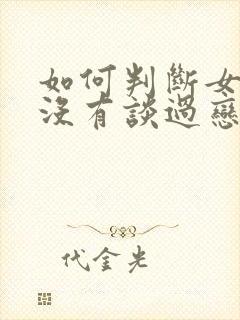 如何判斷女
沒有談過戀
代金光